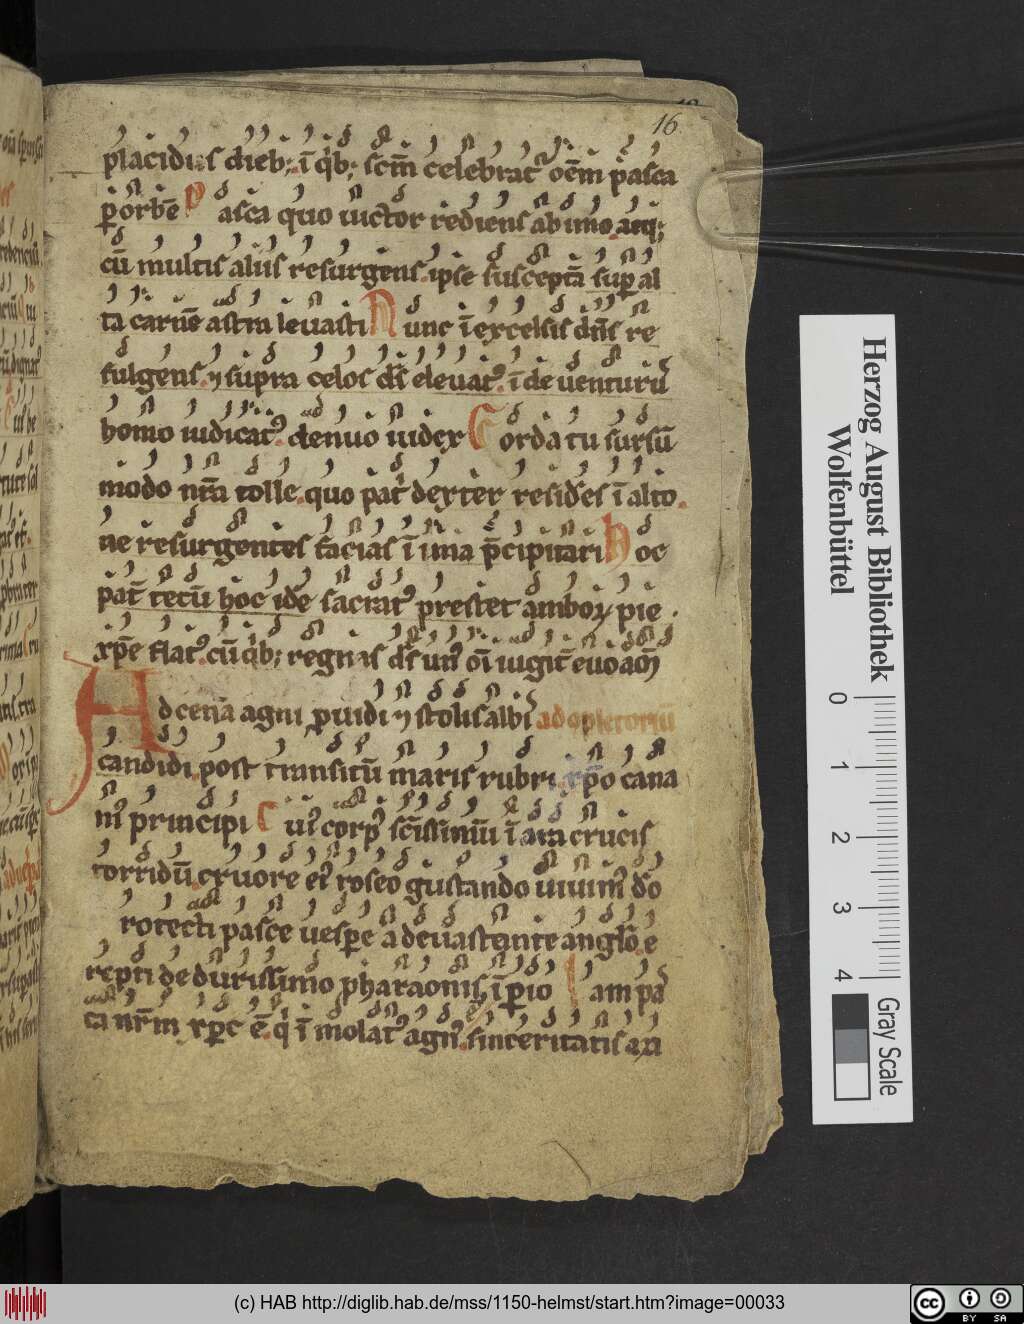 16
placidis dieb; ī q̇b; scm̄ celebrat oēm pasca
p orbē Pasca quo uictor rediens ab imo atq;
cū multis aliis resurgens. ipse susceptā sup al
ta carnē astra leuasti Nunc ī excelsis dn̄s re
fulgens. ⁊ supra celos ds̄ eleuat᾿. īde uenturū
homo iudicat᾿. denuo iudex Corda tu sursū
modo nr̄a tolle. quo pat̄ dexter resides ī alto.
ne resurgentes facias ī ima p̄cipitari Hoc
pat̄ tecū hoc idē sacrat᾿ prestet amboꝝ pie.
xp̄e flat᾿. cū q̇b; regnas ds̄ un᾿ oī iugit̄ euo am̄
Ad cenā agni puidi ⁊ stolis albis ad opletoriū
candidi. post transitū maris rubri. xp̄o cana
m᾿ principi Cui᾿ corp᾿ sc̄issimū ī ara crucis
torridū. cruore ei᾿ roseo gustando uiuim᾿ do
rotecti pasce uesp̄e a deuastante anglo. e
repti de durissimo pharaonis īperio Iam pa
ca nr̄m xp̄c ē. q̇ īmolat᾿ agn᾿. sinceritatis azi
Herzog August Bibliothek
Wolfenbüttel
0 1 2 3 4
Gray Scale
(c) HAB http://diglib.hab.de/mss/1150-helmst/start.htm?image=00033
cc BY SA